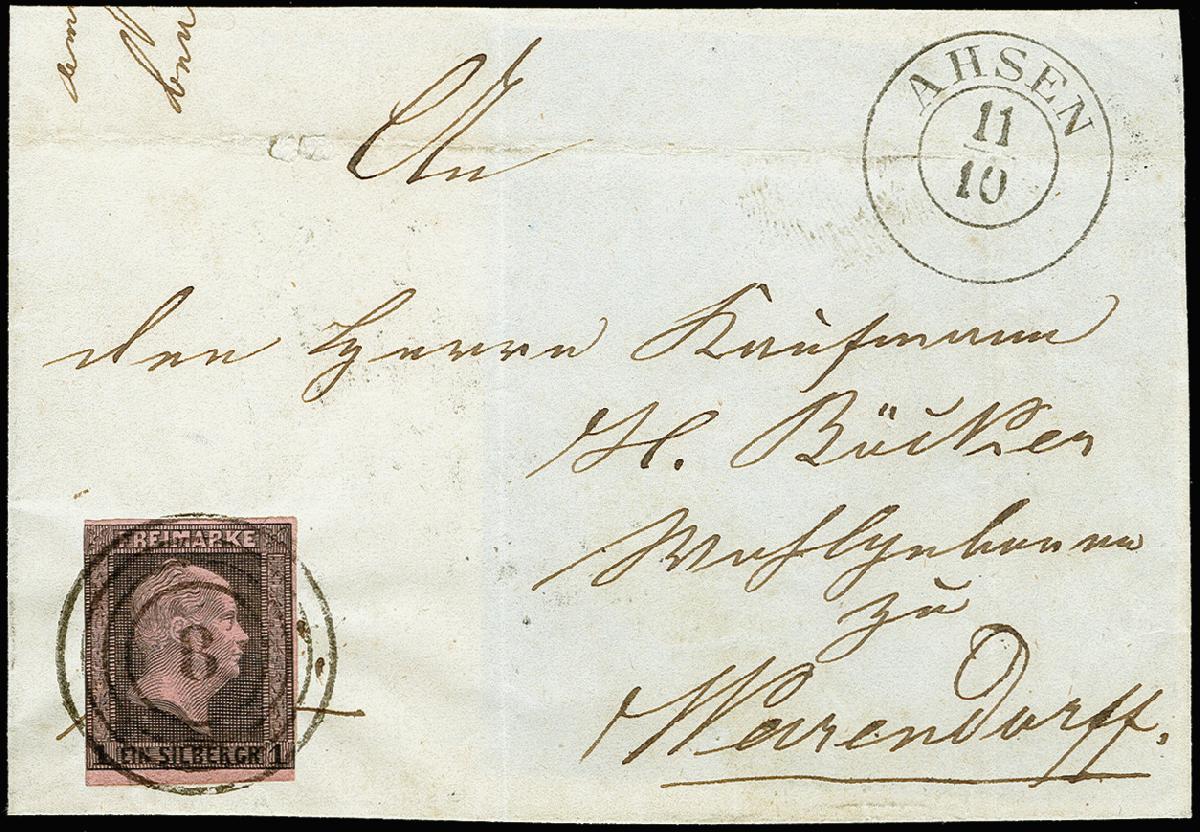 AHSEN
11
10
An
den Herrn Kaufmann
H. Böcker
Wohlgeboren
zu
Warendorff.
FREIMARKE
8
1 EIN SILBERGR. 1